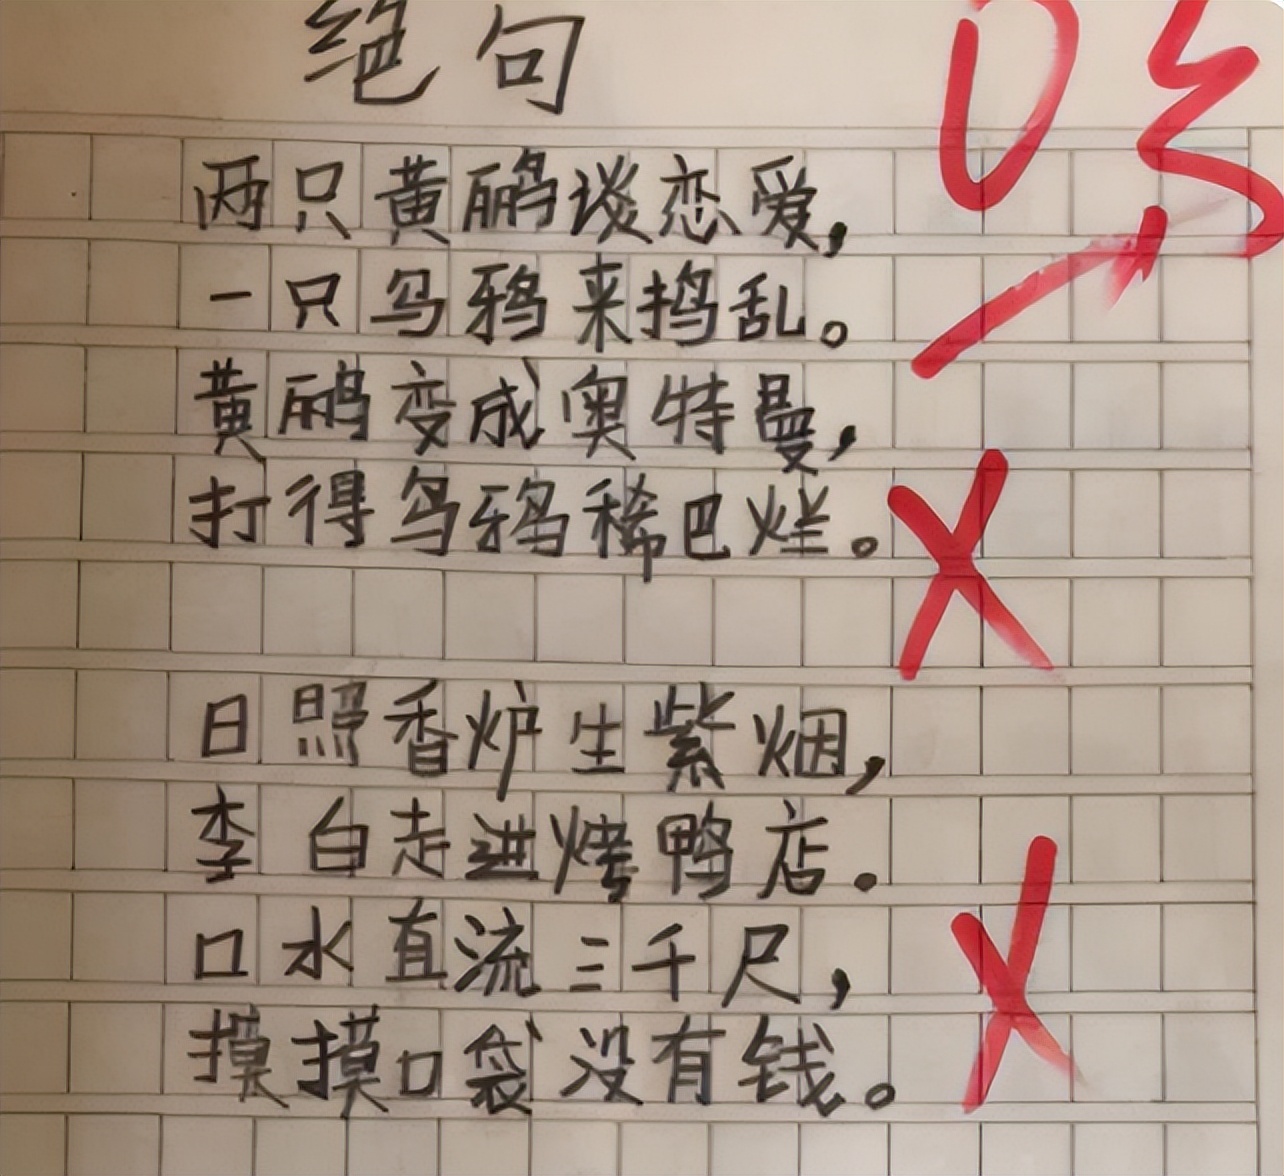 绝句
0
两只黄鹂谈恋爱，
一只乌鸦来捣乱。
黄鹂变成奥特曼，
打得乌鸦稀巴烂。
日照香炉生紫烟，
李白走进烤鸭店.
口水直流三千尺，
摸摸口袋没有钱。